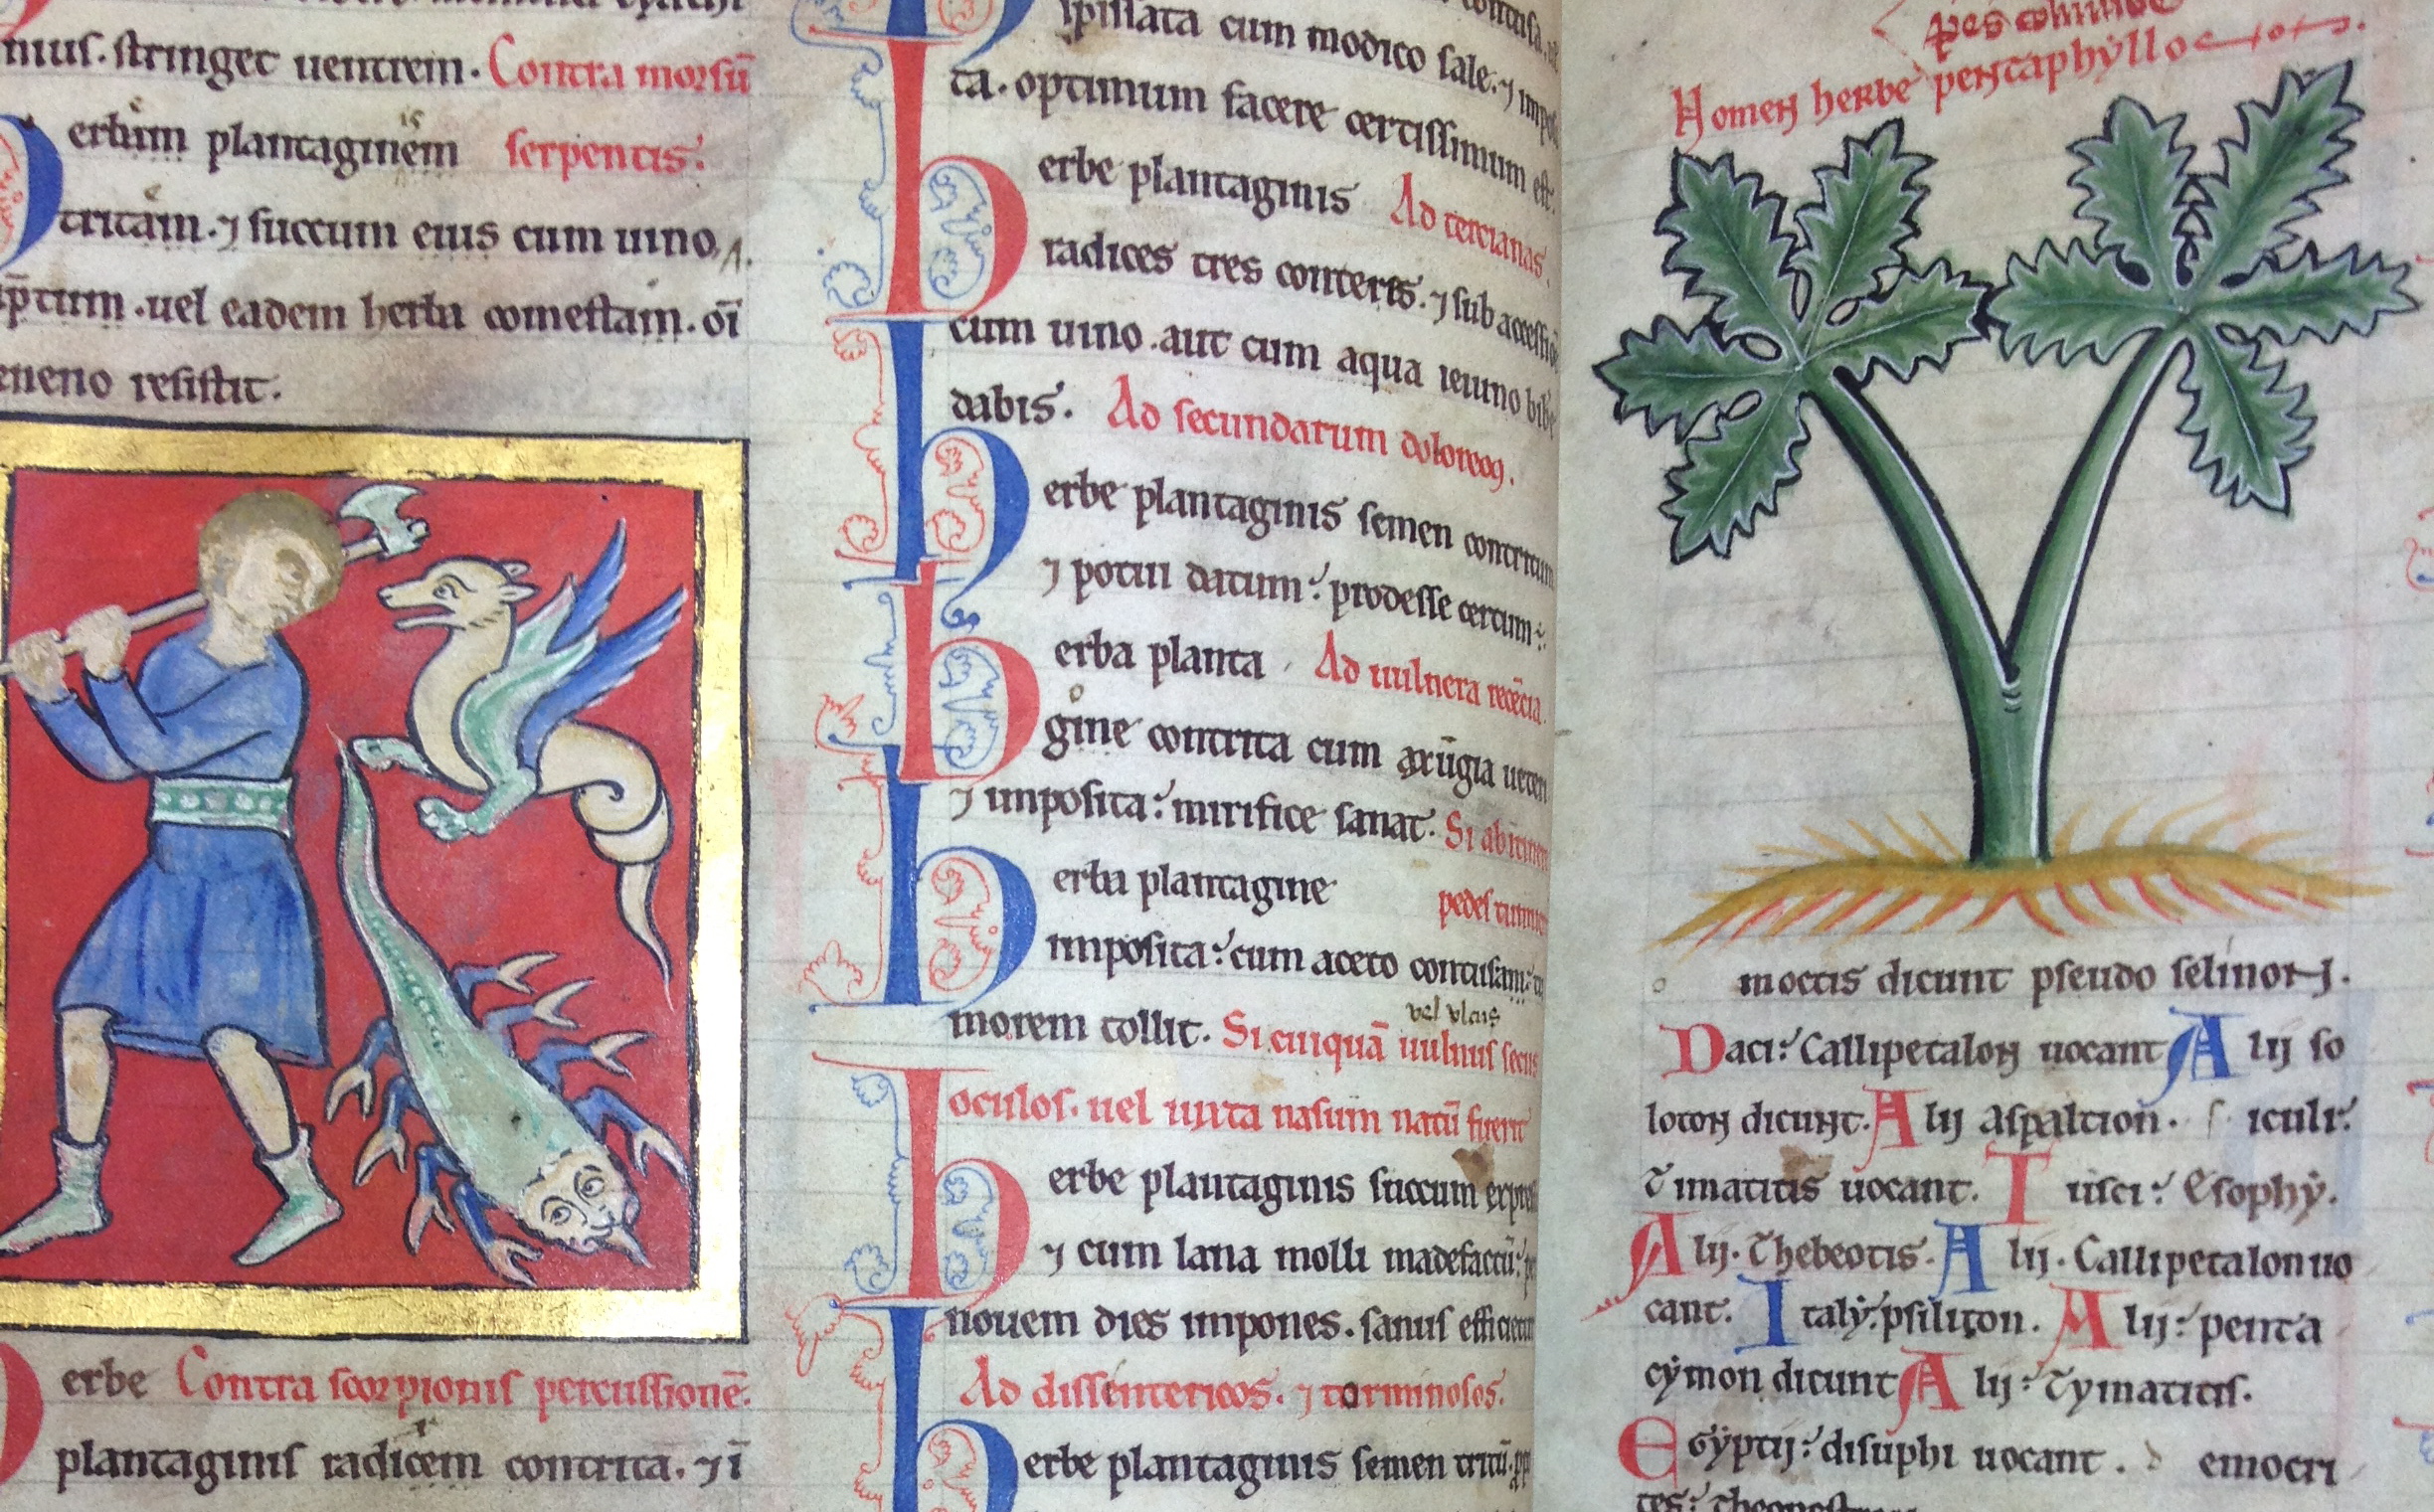 mus. stringet uentrem. Contra morsū
erbam plantaginem serpentis:
tritam. ⁊ succum eius cum uino
uel eadem herba comestam. oī
ueneno resistit.
erbe Contra scorpionis percussionē.
plantaginis radicem contrita. ⁊ ī
cum modico sale. ⁊
ta. optimum facere certissimum est.
herbe plantaginis Ad tercianas
radices tres conteris. ⁊ sub
cum uino. aut cum aqua ieiuno
dabis. Ad secundarum dolores.
herbe plantaginis semen contritum
⁊ potui datum: prodesse certum:
herba planta Ad uulnera recēcia.
gine contrita cum axūgia
⁊ imposita: mirifice sanat. Si
herba plantagine pedes
imposita: cum aceto contusam:
vel vlcus
morem tollit. Si cuiquā uulnus secus
oculos. uel iuxta nasum natū fuerit
herbe plantaginis succum
⁊ cum lana molli madefactū:
nouem dies impones. sanus
Ad dissentericos. ⁊ torminosos.
herbe plantaginis semen tritū.
pes
Nomen herbe pentaphyllo
moetis dicunt pseudo selinon.
Daci: Callipetalon uocant Alij so
loton dicunt. Alij aspaltion. siculi:
Timatitis uocant. Tusci: Esophy.
Alij. Thebeotis. Alij. Callipetalon uo
cant. Italy: psiliton. Alij: penta
cymon dicunt Alij: Tymatitis.
Egyptij: disuphi uocant. d emocri